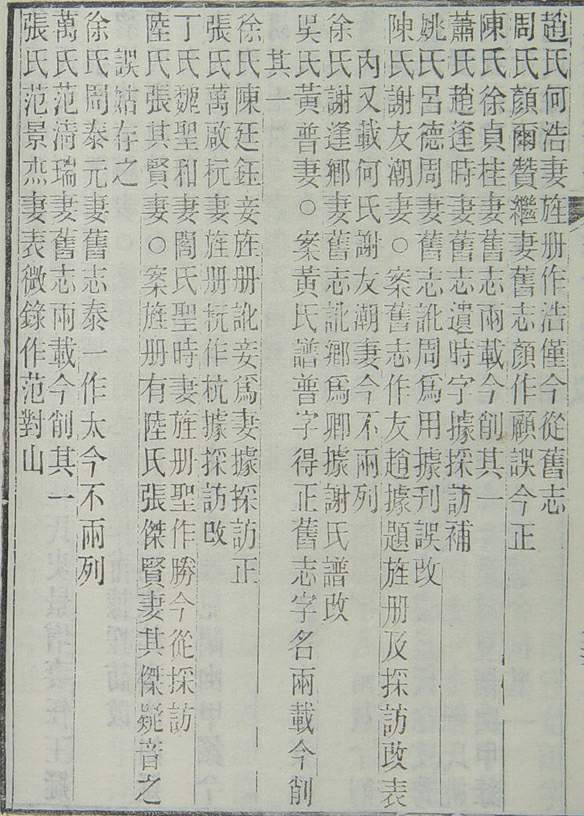 趙氏何浩妻旌册作浩僅今從舊志
周氏顏爾贊繼妻舊志顏作顧誤今正
陳氏徐貞桂妻舊志兩載今削其一
蕭氏趙逢時妻舊志遺時字據採訪補
姚氏呂德周妻舊志訛周爲用據刊誤改
陳氏謝友潮妻○案舊志作友趙據題旌册及採訪改表
內又載何氏謝友潮妻今不兩列
徐氏謝逢鄉妻舊志訛鄉爲卿據謝氏譜改
吳氏黃普妻○案黃氏譜普字得正舊志字名兩載今削
其一
徐氏陳廷鈺妾旌册訛妾爲妻據採訪正
張氏萬敵杬妻旌册杬作杭據採訪改
丁氏魏聖和妻閻氏聖時妻旌册聖作勝今從採訪
陸氏張其賢妻○案旌册有陸氏張傑賢妻其傑疑音之
誤姑存之
徐氏周泰元妻舊志泰一作太今不兩列
萬氏范淸瑞妻舊志兩載今削其一
張氏范景杰妻表微錄作范對山